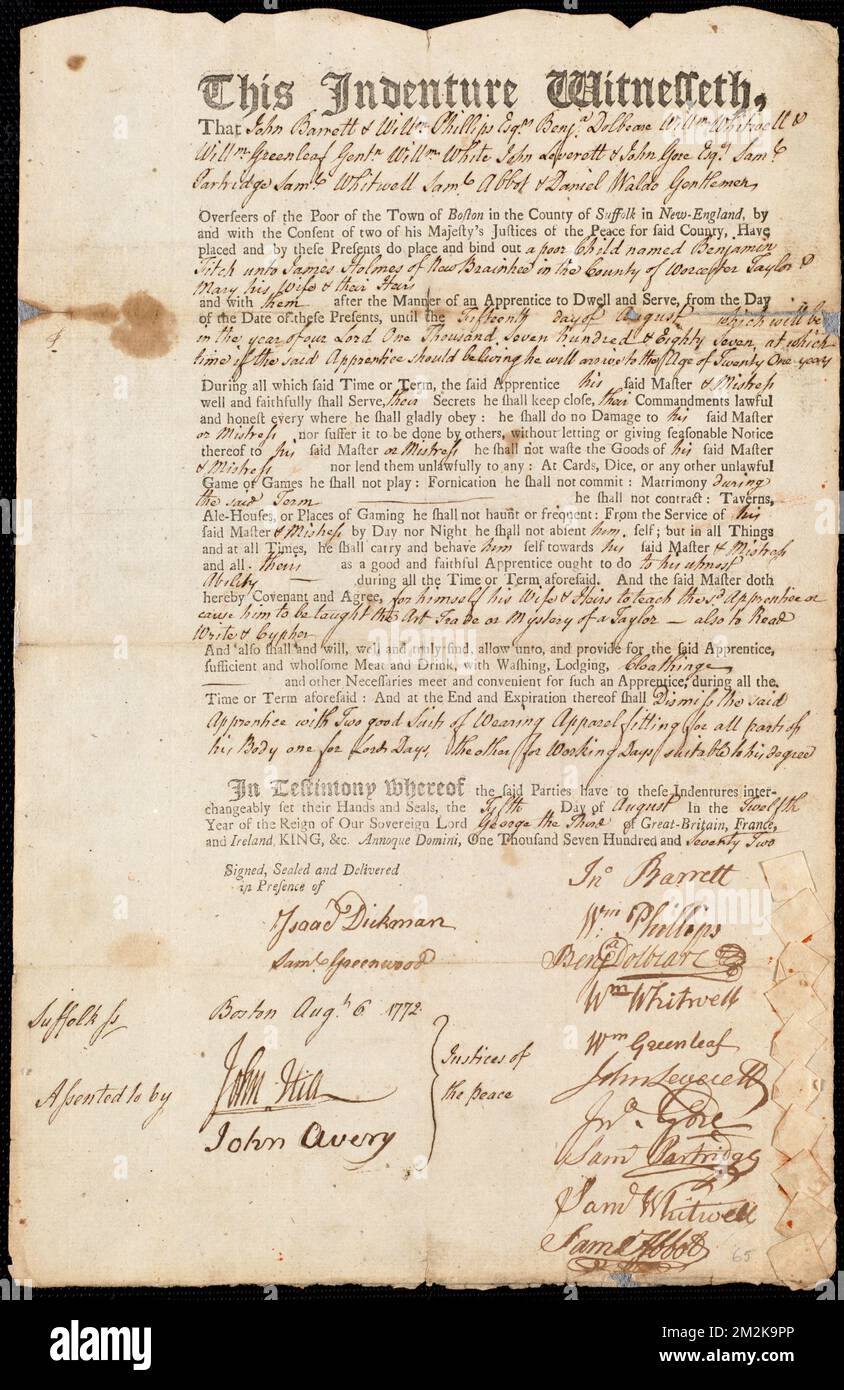 This Indenture Witnesseth,
That John Barrett & Willm Phillips Esqrs Benja Dolbeare Willm Whitwell &
Willm Greenleaf Gentn Willm White John Leverett & John Gore Esqrs Saml
Partridge Saml Whitwell Saml Abbot & Daniel Waldo Gentlemen
Overseers of the Poor of the Town of Boston in the County of Suffolk in New-England, by
and with the Consent of two of his Majesty's Justices of the Peace for said County, Have
placed and by these Presents do place and bind out a poor Child named Benjamin
Fitch unto James Holmes of New Braintree in the County of Worcester Taylor &
Mary his Wife & their Heirs
and with them after the Manner of an Apprentice to Dwell and Serve, from the Day
of the Date of these Presents, until the Fifteenth day of August which will be
in the year of our Lord One Thousand Seven hundred & Eighty Seven, at which
time if the said Apprentice should be living he will arrive to the Age of Twenty One years
During all which said Time or Term, the said Apprentice his said Master & Mistress
well and faithfully shall Serve, their Secrets he shall keep close, their Commandments lawful
and honest every where he shall gladly obey: he shall do no Damage to his said Master
or Mistress nor suffer it to be done by others, without letting or giving seasonable Notice
thereof to his said Master or Mistress he shall not waste the Goods of his said Master
& Mistress nor lend them unlawfully to any: At Cards, Dice, or any other unlawful
Game or Games he shall not play: Fornication he shall not commit: Matrimony during
the said Term he shall not contract: Taverns,
Ale-Houses, or Places of Gaming he shall not haunt or frequent: From the Service of his
said Master & Mistress by Day nor Night he shall not absent him self; but in all Things
and at all Times, he shall carry and behave him self towards his said Master & Mistress
and all theirs as a good and faithful Apprentice ought to do to his utmost
Ability during all the Time or Term aforesaid. And the said Master doth
hereby Covenant and Agree, for himself his Wife & Heirs to teach the sd Apprentice or
cause him to be taught the Art Trade or Mystery of a Taylor — also to Read
Write & Cypher
And also shall and will, well and truly find, allow unto, and provide for the said Apprentice,
sufficient and wholsome Meat and Drink, with Washing, Lodging, Cloathing
and other Necessaries meet and convenient for such an Apprentice, during all the
Time or Term aforesaid: And at the End and Expiration thereof shall Dismiss the said
Apprentice with Two good Suits of Wearing Apparel fitting for all parts of
his Body one for Lords Days, the other for Working Days suitable to his degree
In Testimony whereof the said Parties have to these Indentures inter-
changeably set their Hands and Seals, the Fifth Day of August In the Twelfth
Year of the Reign of Our Sovereign Lord George the Third of Great-Britain, France,
and Ireland, KING, &c. Annoque Domini, One Thousand Seven Hundred and Seventy Two
Signed, Sealed and Delivered
in Presence of
Isaac Dickman
Saml Greenwood
Jno Barrett
Wm Phillips
Benja Dolbeare
Wm Whitwell
Wm Greenleaf
John Leverett
Jno Gore
Saml Partridge
Saml Whitwell
Saml Abbot
65
Suffolk ss Boston Augt 6 1772
Assented to by
John Hill
John Avery
Justices of
the peace
alamy
Image ID: 2M2K9PP
www.alamy.com